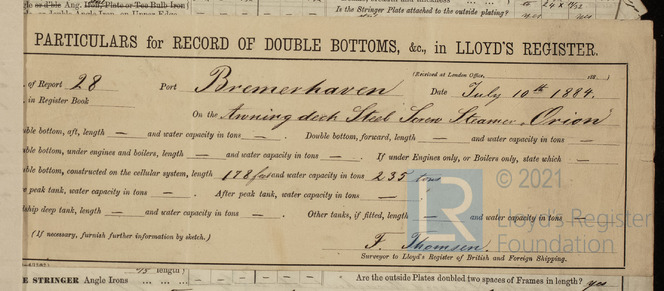 gle or double Angle Iron, or Upper Edge
Is the Stringer Plate attached to the outside plating?
PARTICULARS for RECORD OF DOUBLE BOTTOMS, &c., in LLOYD'S REGISTER.
(Received at London Office, 188 )
. of Report 28 Port Bremerhaven Date July 10th 1884.
. in Register Book
On the Awning deck Steel Screw Steamer "Orion"
uble bottom, aft, length — and water capacity in tons — . Double bottom, forward, length — and water capacity in tons —
uble bottom, under engines and boilers, length — and water capacity in tons — . If under Engines only, or Boilers only, state which —
uble bottom, constructed on the cellular system, length 178 feet and water capacity in tons 235 tons
e peak tank, water capacity in tons — . After peak tank, water capacity in tons —
dship deep tank, length — and water capacity in tons — . Other tanks, if fitted, length — and water capacity in tons —
(If necessary, furnish further information by sketch.)
F. Thomsen.
Surveyor to Lloyd's Register of British and Foreign Shipping.
LR
© 2021
Lloyd's Register
Foundation
E STRINGER Angle Irons
Are the outside Plates doubled two spaces of Frames in length? yes